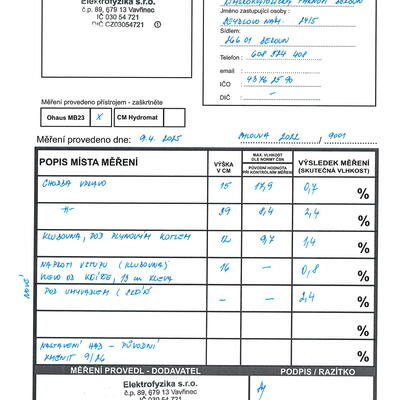 Elektrofyzika s.r.o.
č.p. 89, 679 13 Vavřinec
IČ 030 54 721
DIČ CZ03054721
ŘÍMSKOKATOLICKÁ FARNOST BEROUN
Jméno zastupující osoby :
SEYDLOVO NÁM. 24/5
Sídlem:
266 01 BEROUN
Telefon : 608 324 408
email :
IČO : 43 76 25 90
DIČ : –
Měření provedeno přístrojem - zaškrtněte
Ohaus MB23 X CM Hydromat
Měření provedeno dne: 9.4. 2025 2022 / 9001
POPIS MÍSTA MĚŘENÍ
VÝŠKA V CM
MAX. VLHKOST DLE NORMY ČSN
PŮVODNÍ HODNOTA PŘI KONTROLNÍM MĚŘENÍ
VÝSLEDEK MĚŘENÍ (SKUTEČNÁ VLHKOST)
CHODBA VPRAVO 15 17,9 0,7 %
-"- 89 8,4 2,4 %
KLUBOVNA, POD PLYNOVÝM KOTLEM 12 9,7 1,4 %
NAPROTI VSTUPU (KLUBOVNA) 16 – 0,8 %
VLEVO OD ZLEVA
NOVÉ
POD UMYVADLEM – – 2,4 %
%
NASTAVENÍ HAD – PŮVODNÍ %
KMENIT 9/26
MĚŘENÍ PROVEDL - DODAVATEL PODPIS / RAZÍTKO
Elektrofyzika s.r.o.
č.p. 89, 679 13 Vavřinec
IČ 030 54 721